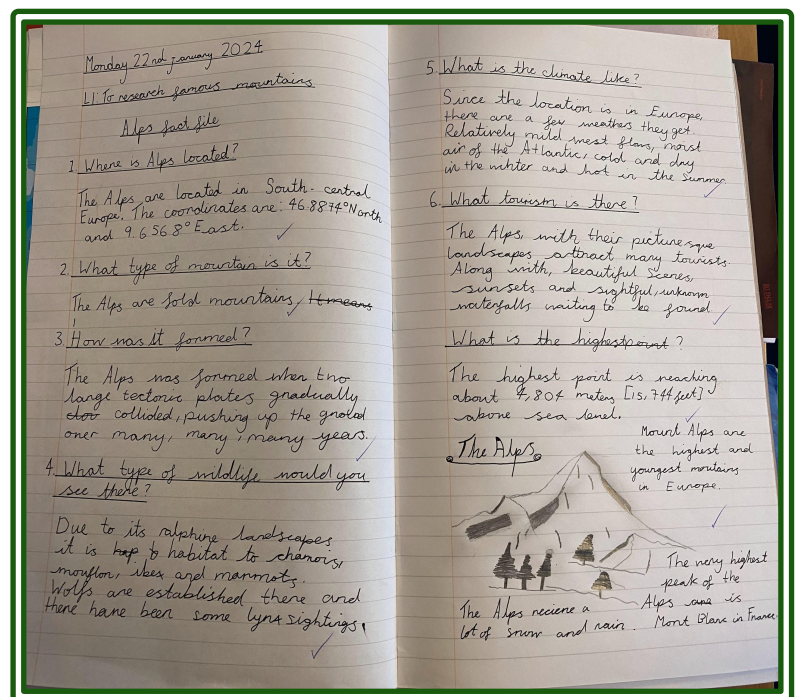 Monday 22nd January 2024
LI To research famous mountains
Alps fact file
1. Where is Alps located?
The Alps are located in South-central
Europe. The coordinates are: 46.8874°North
and 9.6568° East.
2. What type of mountain is it?
The Alps are fold mountains, It means
3. How was it formed?
The Alps was formed when two
large tectonic plates gradually
collided, pushing up the
over many, many, many years.
4. What type of wildlife would you
see there?
Due to its ralphine landscapes
it is habitat to chamois,
mouflon, ibex and marmots.
Wolfs are established there and
there have been some lynx sightings.
5. What is the climate like?
Since the location is in Europe,
there are a few weathers they get.
Relatively mild west flows, moist
air of the Atlantic, cold and dry
in the winter and hot in the Summer.
6. What tourism is there?
The Alps, with their picturesque
landscapes attract many tourists.
Along with, beautiful scenes,
sunsets and sightful, unknown
waterfalls waiting to be found
What is the highestpoint?
The highest point is reaching
about 4,804 meters [15,744 feet]
above sea level.
The Alps
Mount Alps are
the highest and
youngest moutains
in Europe.
The very highest
peak of the
Alps are is
Mont Blanc in France.
The Alps recieve a
lot of snow and rain.